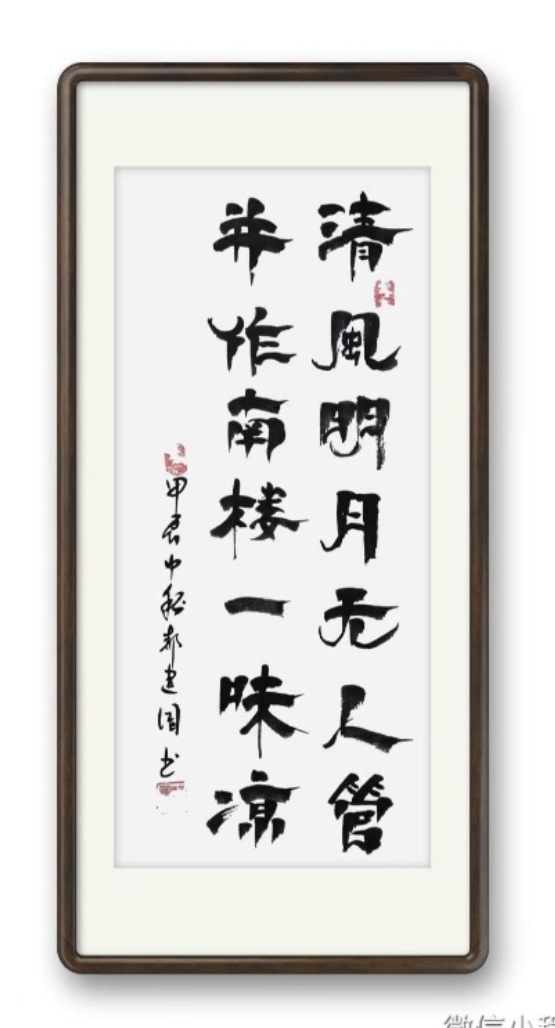 清风明月无人管
并作南楼一味凉
甲辰中秋郝建国书
微信小